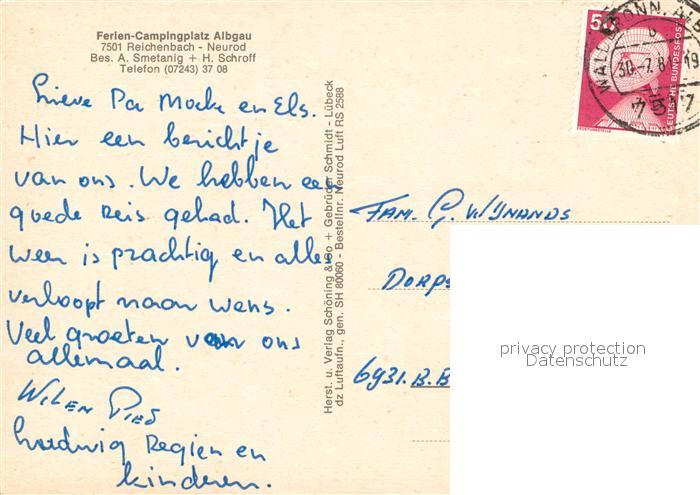 Ferien-Campingplatz Albgau
7501 Reichenbach - Neurod
Bes. A. Smetanig + H. Schroff
Telefon (07243) 37 08
Lieve Pa Moeke en Els.
Hier een berichtje
van ons. We hebben een
goede Reis gehad. Het
weer is prachtig en alles
verloopt naar wens.
Veel groeten van ons
allemaal.
Wil en Pieb
Ludwig Regien en
kinderen.
Herst. u. Verlag Schöning & Co + Gebrüder Schmidt - Lübeck
dz Luftaufn., gen. SH 80060 - Bestellnr. Neurod Luft RS 2588
50
DEUTSCHE BUNDESPOST
WALDBRONN, ALB
30.-7.81-19
FAM. G. WIJNANDS
DORPS
6931. B.B
privacy protection
Datenschutz